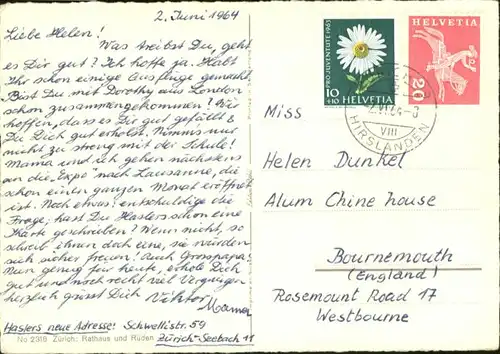 2. Juni 1964
Liebe Helen!
Was treibst Du, geht
es Dir gut? Ich hoffe ja. Habt
Ihr schon einige Ausflüge gemacht,
Bist Du mit Dorothy aus London
schon zusammengekommen? Wir
hoffen, dass es Dir gut gefällt &
Du Dich gut erholst. Nimm's nur
nicht zu streng mit der Schule!
Mama und ich gehen nächstens
an die "Expo" nach Lausanne, die
schon einen ganzen Monat eröffnet
ist. Noch etwas: entschuldige die
Frage; hast Du Haslers schon eine
Karte geschrieben? Wenn nicht, so
schreib ihnen doch eine, sie würden
sich sicher freuen! Auch Grosspapa!
Nun genug für heute, erhole Dich
gut und noch recht viel Vergnügen
herzlich grüsst Dich Viktor
Mama
Haslers neue Adresse: Schwellistr. 59
Zürich-Seebach 11
No 2316 Zürich: Rathaus und Rüden
PRO JUVENTUTE 1963
10
+10 HELVETIA
HELVETIA
20
VIII
HIRSLANDEN
Miss
Helen Dunkel
Alum Chine house
Bournemouth
(England)
Rosemount Road 17
Westbourne